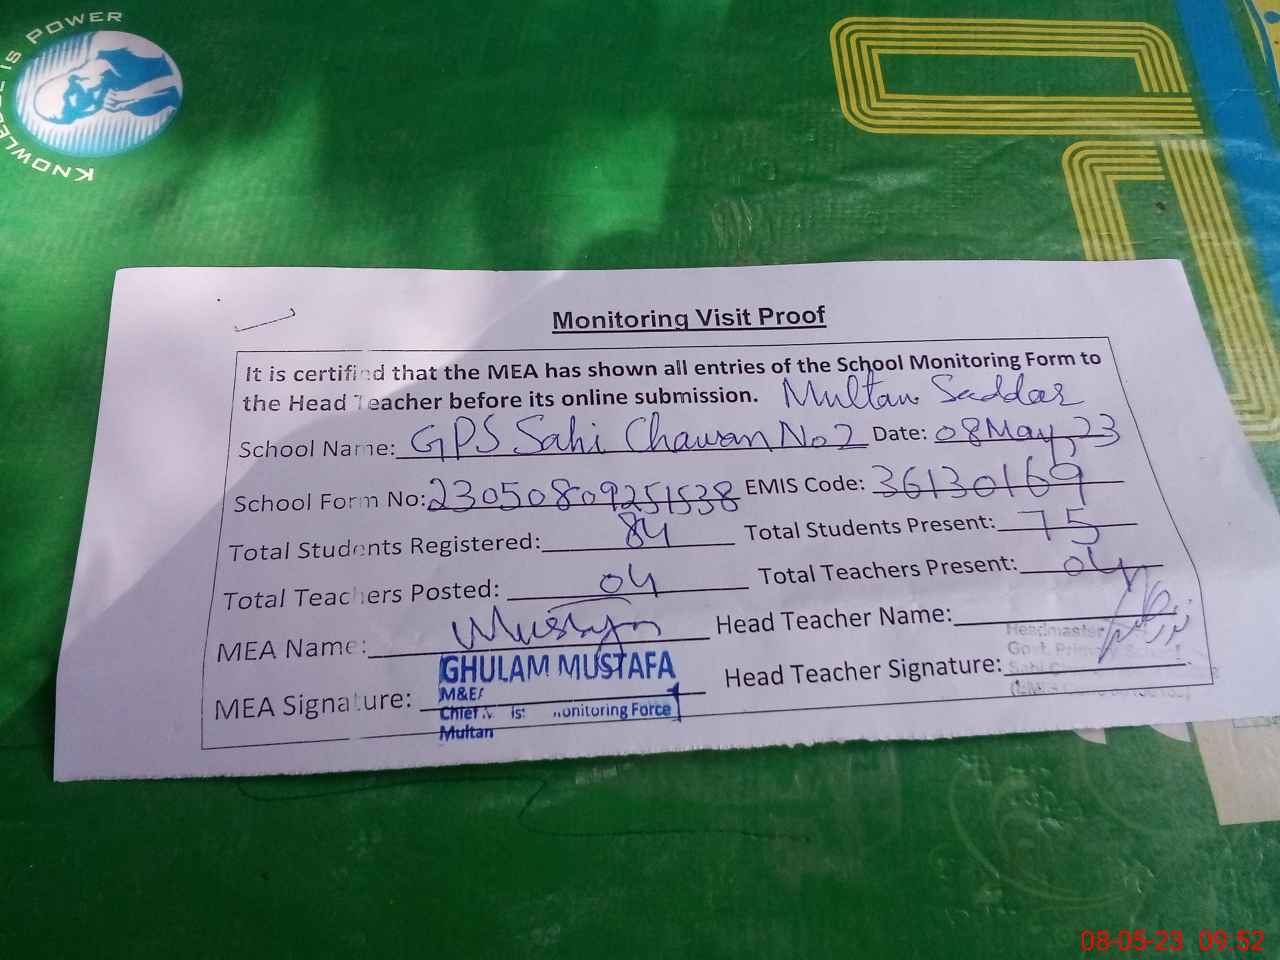 KNOWLEDGE IS POWER
Monitoring Visit Proof
It is certified that the MEA has shown all entries of the School Monitoring Form to
the Head Teacher before its online submission. Multan Saddar
School Name: GPS Sahi Chawan No 2 Date: 08 May, 23
School Form No: 23050809251538 EMIS Code: 36130169
Total Students Registered: 84 Total Students Present: 75
Total Teachers Posted: 04 Total Teachers Present: 04
MEA Name: Head Teacher Name:
MEA Signature: Head Teacher Signature:
GHULAM MUSTAFA
Chief Monitoring Force
Multan
Headmaster
Govt. Primary School
08-05-23 09:52